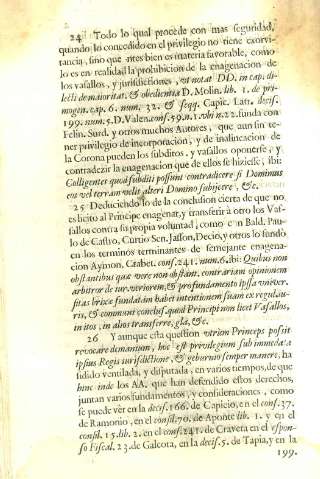 24 Todo lo qual procede con mas seguridad,
quando lo concedido en el privilegio no tiene exorvi-
tancia, sino que antes bien es materia favorable, como
lo es en realidad la prohibicion de la enagenacion de
los vasallos, y jurisdiciones, ut notat DD. in cap. di-
lecti de maioritat. & obedientia D. Molin. lib. 1. de pri-
mogen. cap. 6. num. 32. & seqq. Capic. Latr. decis.
199. num. 5. D. Valen. conf. 59. n. 1. ubi n. 22. funda con
Felin. Surd. y otros muchos Autores, que aun sin te-
ner privilegio de incorporacion, y de inalienacion de
la Corona pueden los subditos, y vasallos oponerse, y
contradezir la enagenacion que de ellos se hiziesse, ibi:
Colligenter quod subditi possunt contradicere si Dominus
eos vel terram velit alteri Domino subijcere, &c.
25 Deduciendo lo de la conclusion cierta de que no
es licito al Principe enagenar, y transferir à otro los Vas-
fallos contra su propia voluntad, como con Bald. Pau-
lo de Castro, Curtio Sen. Jasson, Decio, y otros lo fundò
en los terminos terminantes de semejante enagena-
cion Aymon. Crabet. conf. 241. num. 6. ibi: Quibus non
obstantibus quæ vere non obstant, contrariam opinionem
arbitror de iur. veriorem, & profundamento ipsa univer-
sitas brixæ fundatàm habet intentionem suam ex regulau-
ris, & communi concluf. quod Principi non licet Vasallos,
invitos, in alios transferre, gla, &c.
26 Y aunque esta question verùm Princeps possit
revocare demanium, hoc est privilegium sub immediata
ipsius Regis iurisdictione, & geborniò semper manere, ha
sido ventilada, y disputada, en varios tiempos, de que
hinc inde los AA. que han defendido estos derechos,
juntan varios fundamentos, y consideraciones, como
se puede vèr en la decis. 166. de Capicio, en el conf. 37.
de Ramonio, en el consil. 70. de Aponte lib. 1. y en el
consil. 15. lib. 2. en el conf. 241. de Craveta en el respon-
so Fiscal. 23. de Galeota, en la decis. 5. de Tapia, y en la
199.